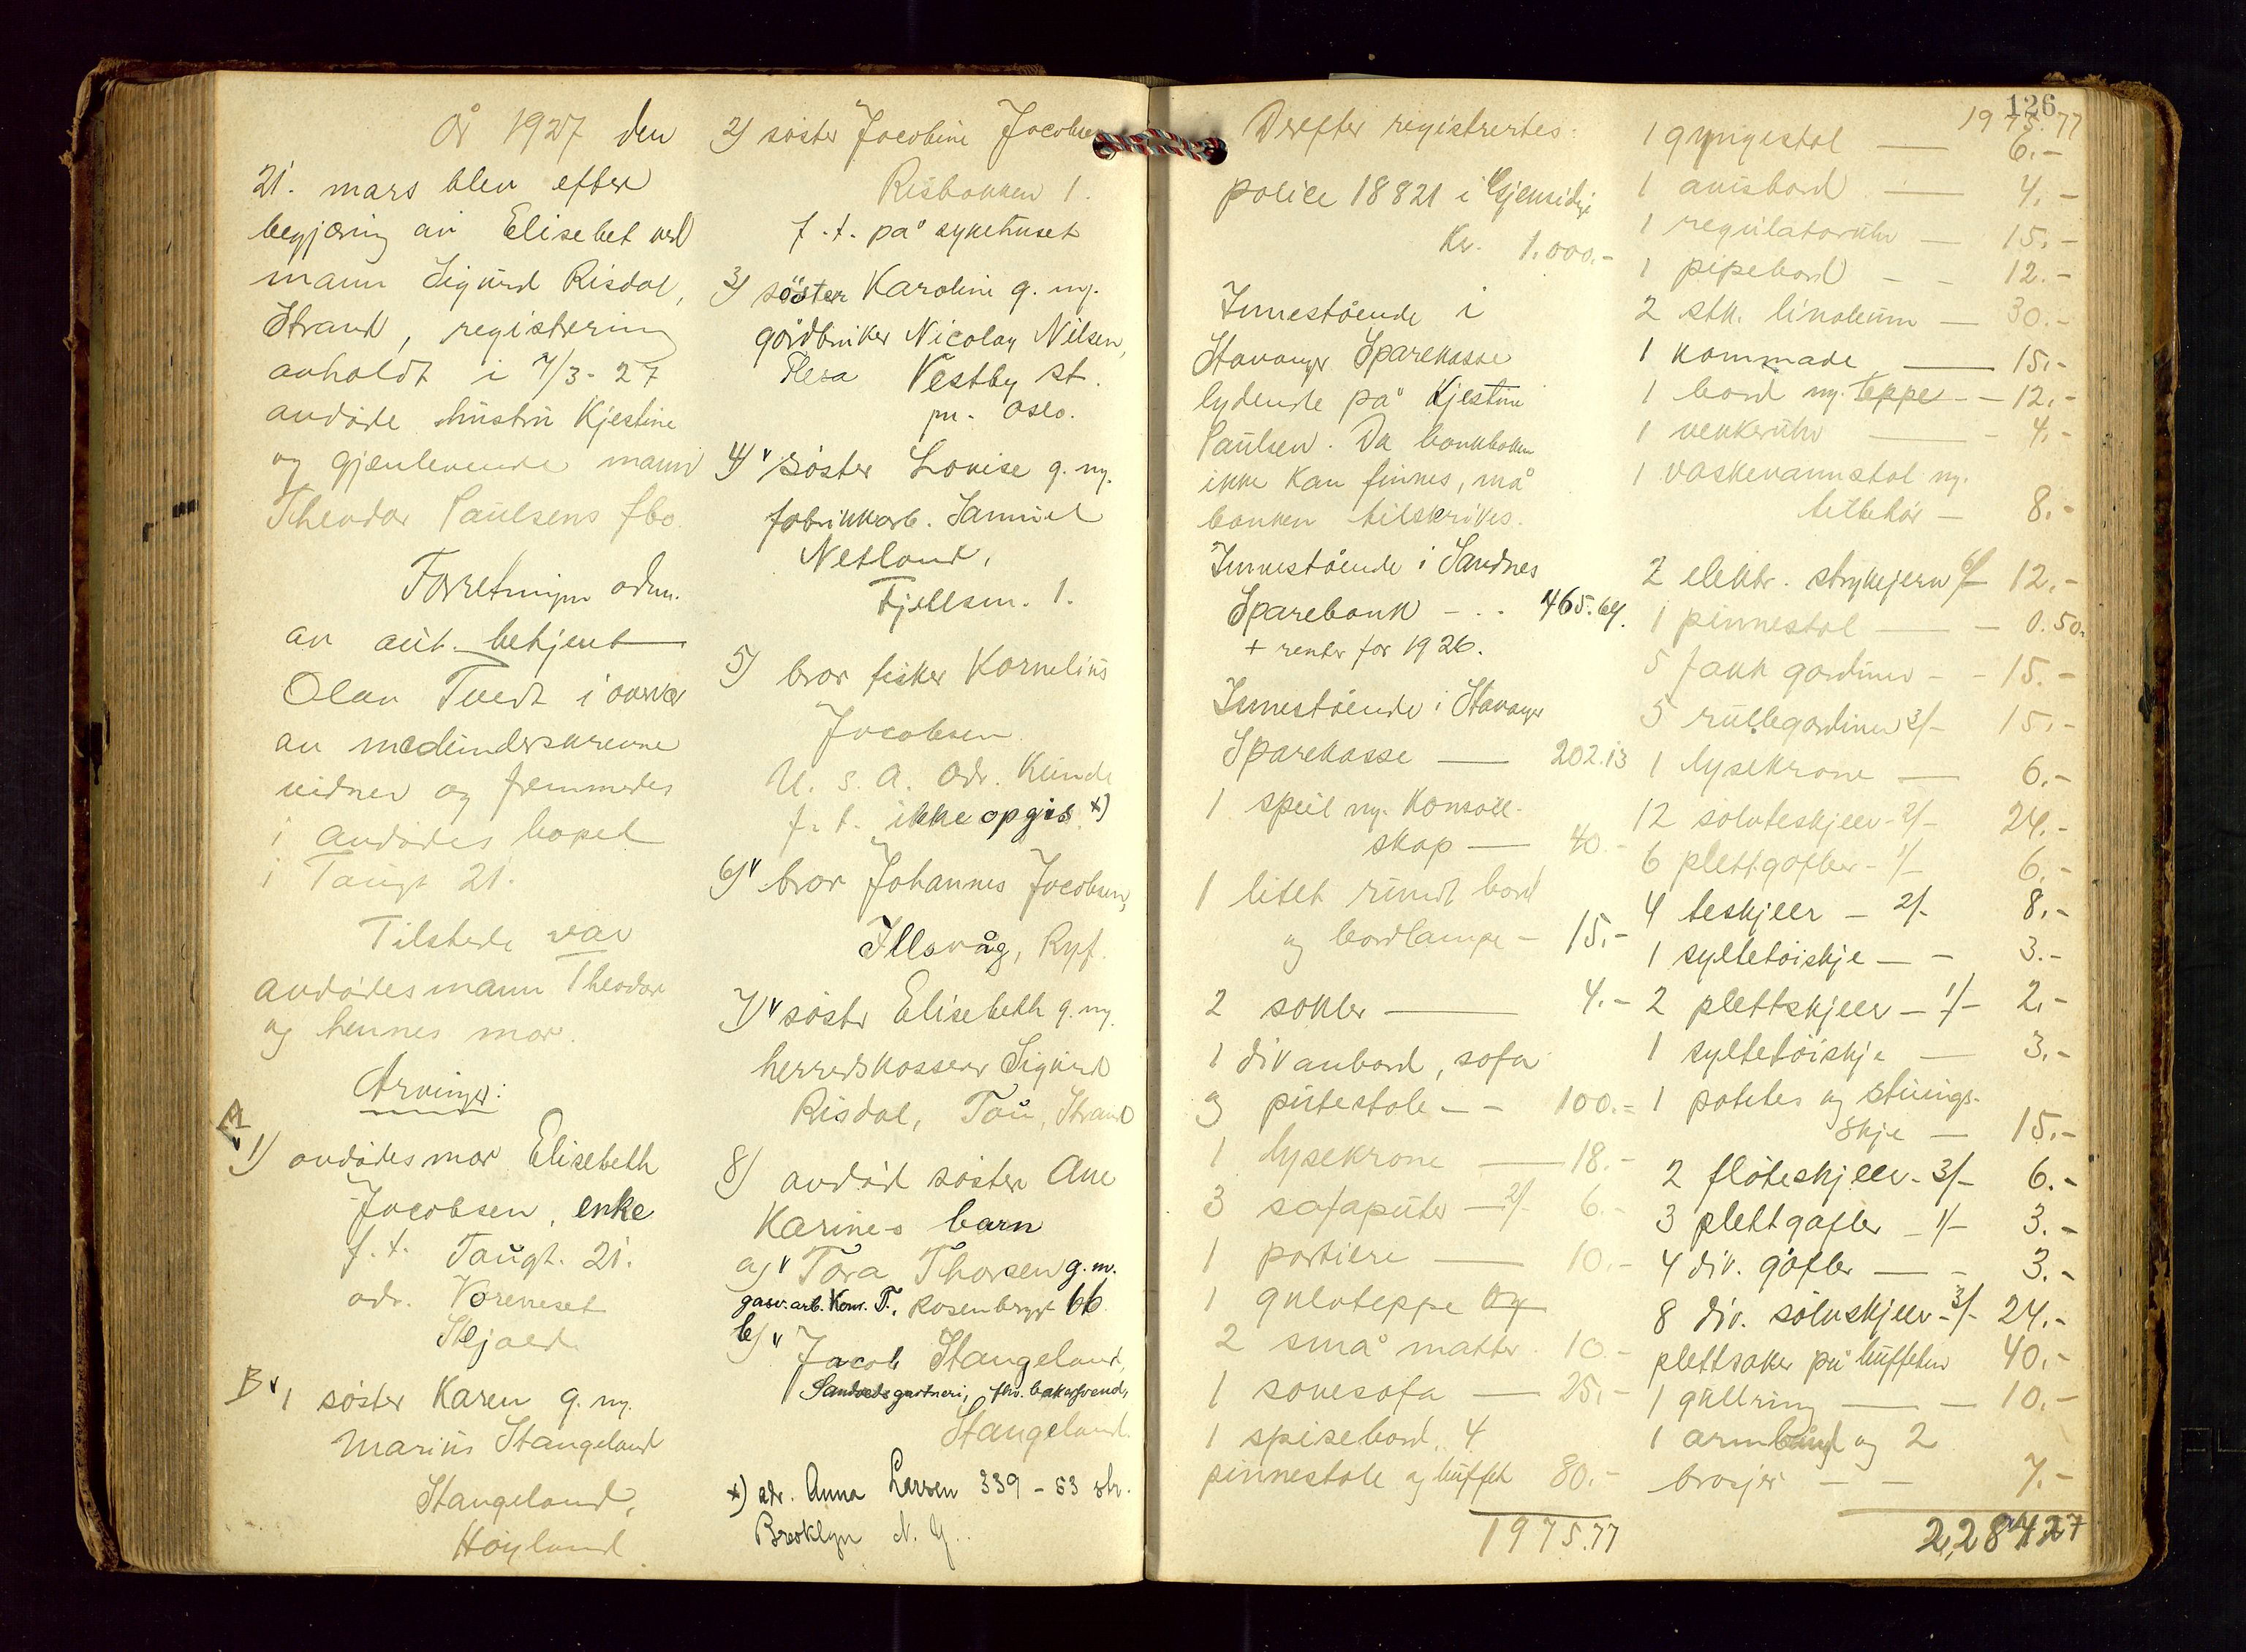 År 1927 den
21. mars blev efter
begjæring av Elisebet ved
mann Sigurd Risdal,
Strand, registrering
avholdt i 7/3-27
avdøde hustru Kjestine
og gjenlevende mann
Theodor Paulsens fbo.
Forretningen adm.
av aut. betjent
Olav Tvedt i overvær
av medunderskrevne
vidner og fremmedes
i avdødes bopel
i Taugt 21.
Tilstede var
avdødes mann Theodor
og hennes mor.
Arvinger:
A
1) avdødes mor Elisebeth
Jacobsen, enke
f.t. Taugt. 21.
adr. Voreneset
Skjold
B 1 søster Karen g. m.
Marius Stangeland
Stangeland,
Høyland
2) søster Jacobine Jacobsen
Risbakken 1.
f.t. på sykehuset
3) søster Karoline g. m.
gårdbruker Nicolay Nilsen,
Vestby st.
pr. Oslo.
4) søster Lovise g. m.
fabrikkarb. Samuel
Netland,
Fjellsm. 1.
5) bror fisker Kornelius
Jacobsen
U. S. A. Adr. kunde
f.t. ikke opgis x)
6) bror Johannes Jacobsen,
Ilsvåg, Ryf.
7) søster Elisebeth g. m.
herredskasserer Sigurd
Risdal, Tau, Strand
8) avdød søster Ane
Karines barn
a) Tora Thorsen g. m.
gasv. arb. Konr. T., Rosenbergt 66
b) Jacob Stangeland,
Sandvedsgartneri, fhv. bakersvend,
Stangeland.
x) adr. Anna Larsen 339 - 53 str.
Brooklyn N. Y.
126
Derefter registrertes:
police 18821 i Gjensidige
Kr. 1.000.-
Innestående i
Stavanger Sparekasse
lydende på Kjestine
Paulsen. Da bankboken
ikke kan finnes, må
banken tilskrives.
Innestående i Sandnes
Sparebank - - 465.64
+ renter for 1926.
Innestående i Stavanger
Sparekasse — 202.13
1 speil m. konsoll-
skap — 40.-
1 litet rundt bord
og bordlampe - 15.-
2 sokler — 4.-
1 divanbord, sofa
og putestole - - 100.-
1 lysekrone — 18.-
3 sofaputer - 2/- 6.-
1 portiere — 10.-
1 gulvteppe og
2 små matter 10.-
1 sovesofa — 25.-
1 spisebord, 4
pinnestole og buffet 80.-
1975.77
1975.77
1 gyngestol — 6.-
1 avisbord — 4.-
1 regulatoruhr — 15.-
1 pipebord - - 12.-
2 stk. linoleum — 30.-
1 kommode — 15.-
1 bord m. teppe - - 12.-
1 vekkeruhr - 4.-
1 vaskevannstol m.
tilbehør — 8.-
2 elektr. strykejern 6/- 12.-
1 pinnestol — - 0.50
5 fakk gardiner - - 15.-
5 rullegardiner 3/- 15.-
1 lysekrone — 6.-
12 sølvteskjeer - 2/- 24.-
6 plettgafler - 1/- 6.-
4 teskjeer - 2/- 8.-
1 syltetøiskje - - 3.-
2 plettskjeer - 1/- 2.-
1 syltetøiskje — 3.-
1 potetes og stuings-
skje — 15.-
2 fløteskjeer - 3/- 6.-
3 plettgafler - 1/- 3.-
4 div. gafler — - 3.-
8 div. sølvskjeer - 3/- 24.-
plettsaker på buffeten 40.-
1 gullring — - 10.-
1 armbånd og 2
brosjer - - 7.-